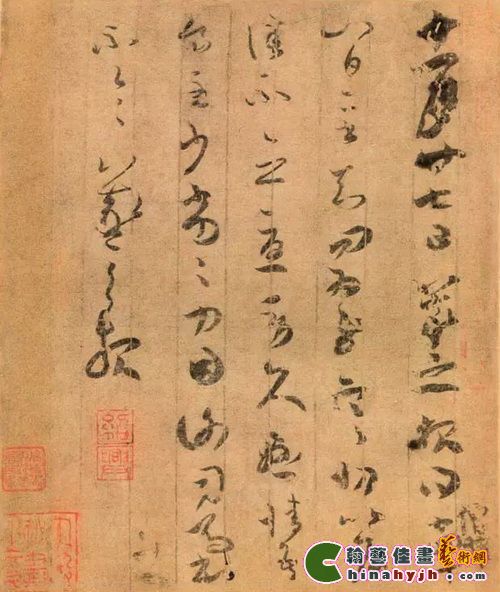 十一月廿七日羲之報得十四十
八日二書知問為慰寒切比各
佳不念憂勞久懸情吾
食至少劣劣力因謝司馬書
不一一羲之報
紹興
翰藝佳畫藝術網
Chinahyjh.com